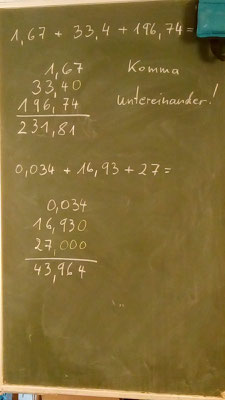 1,67 + 33,4 + 196,74 =
1,67 Komma
33,40
196,74 untereinander!
231,81
0,034 + 16,93 + 27 =
0,034
16,930
27,000
43,964